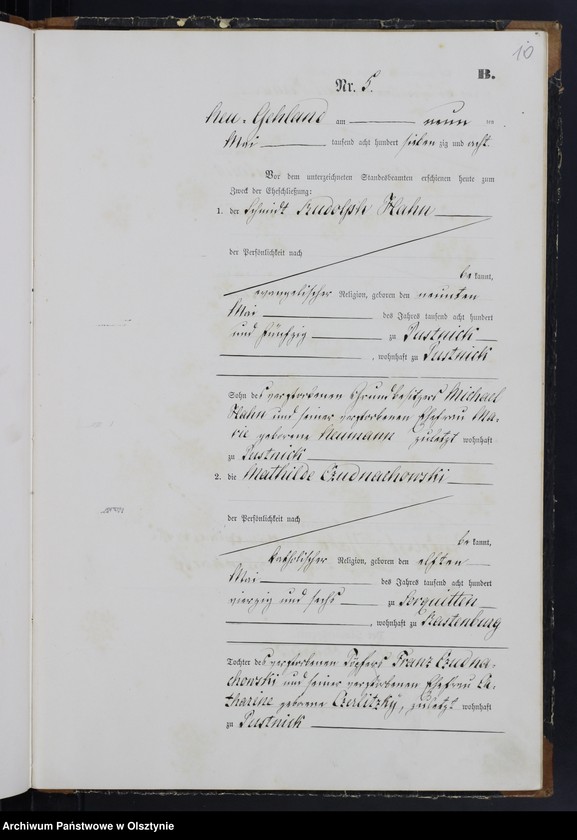 10
B.
Nr. 5.
Neu-Gehland am neun ten
Mai tausend acht hundert sieben zig und acht.
Vor dem unterzeichneten Standesbeamten erschienen heute zum
Zweck der Eheschließung:
1. der Schmidt Rudolph Hahn
der Persönlichkeit nach
be kannt,
evangelischer Religion, geboren den neunten
Mai des Jahres tausend acht hundert
und fünfzig zu Pustnick
, wohnhaft zu Pustnick
Sohn des verstorbenen Grundbesitzers Michael
Hahn und seiner verstorbenen Ehefrau Ma-
rie geborene Neumann zuletzt wohnhaft
zu Pustnick
2. die Mathilde Czudnachowski
der Persönlichkeit nach
be kannt,
katholischer Religion, geboren den elften
Mai des Jahres tausend acht hundert
vierzig und sechs zu Sorquitten
, wohnhaft zu Rastenburg
Tochter des verstorbenen Töpfers Franz Czudna-
chowski und seiner verstorbenen Ehefrau Ca-
tharine geborene Czerlitzky, zuletzt wohnhaft
zu Pustnick
Archiwum Państwowe w Olsztynie